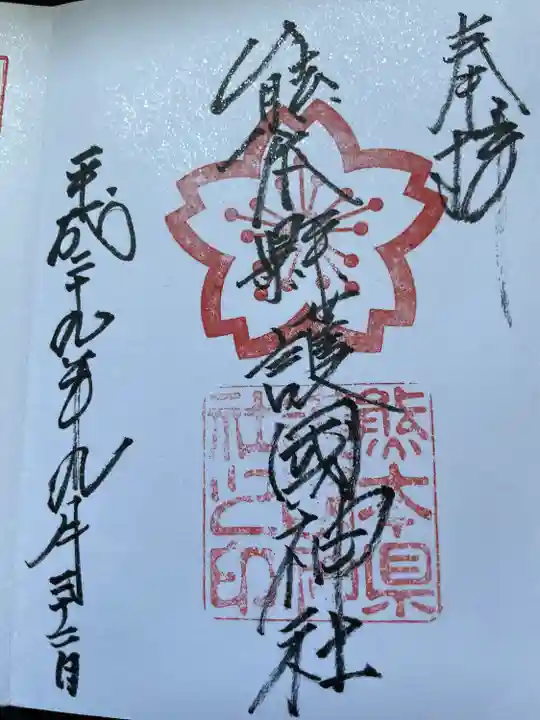 奉拝
熊本縣護國神社
熊本県
社之印
平成二十九年九月二十二日